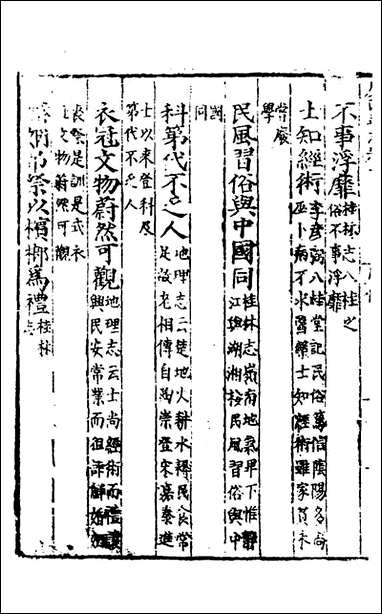 不事浮靡 桂林志八桂之俗不事浮靡
士知經術 李彦弼八桂堂記民俗篤信陰陽多尚巫卜病不求醫藥士知經術雖家貧未
嘗廢學
民風習俗與中國同 桂林志嶺南地氣卑下惟江與湖湘接民風習俗與中
國同
科第代不乏人 地理志云楚地火耕水耨民食常足故老相傳自馮崇登宋嘉泰進
士以來登科及第代不乏人
衣冠文物蔚然可觀 地理志云士尚經術而禮讓興民安常業而狙詐鮮婚姻
喪祭是訓是式衣冠文物蔚然可觀
弔祭以檳榔爲禮 桂林志